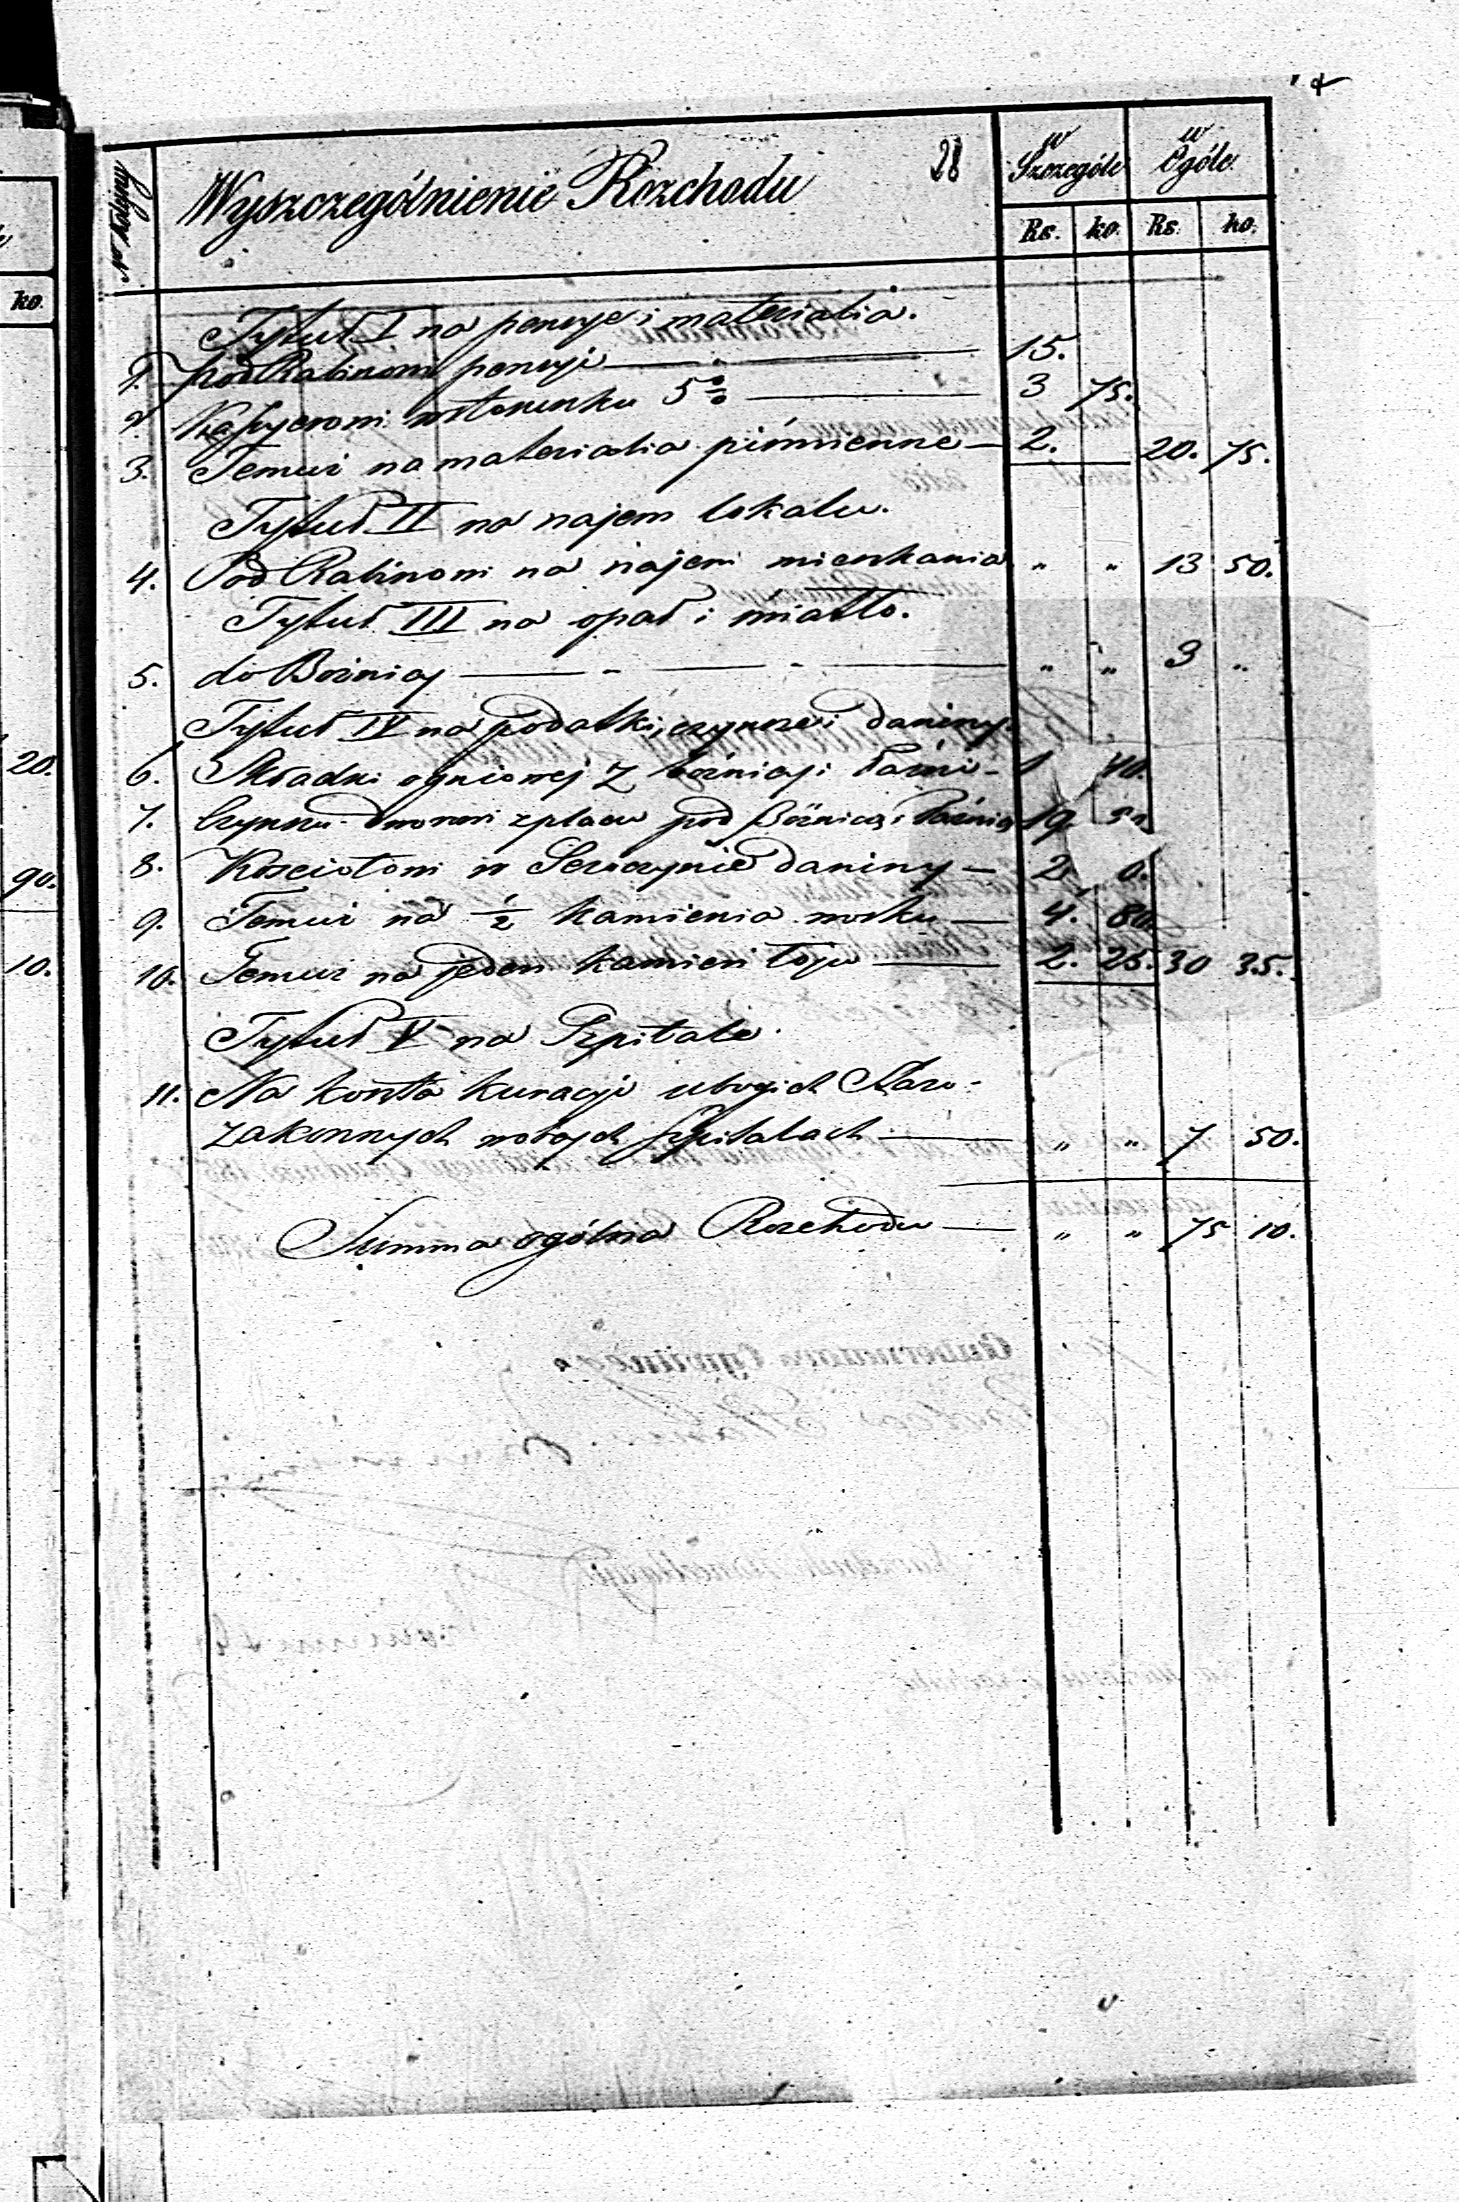 28
Nr kolejny Wyszczególnienie Rozchodu w Szczególe w Ogóle
Rs. ko. Rs. ko.
Tytuł I na pensye i materialia.
1. Pod Rabinowi pensyi 15.
2. Kassyerowi 5 % 3 75.
3. Temuż na materialia piśmienne 2. 20. 75.
Tytuł II na najem lokalu.
4. Pod Rabinowi na najem mieszkania " " 13 50.
Tytuł III na opał i światło.
5. do Bożnicy " " 3 "
Tytuł IV na podatki, czynsze i daniny.
6. Składki ogniowej z bożnicy i łaźni 1 40.
7. Czynszu dworowi z placu pod Bóżnicą i łaźnią 19
8. Kościołowi w daniny 2
9. Temuż na ½ kamienia wosku 4. 80.
10. Temuż na jeden kamień łoju 2. 25. 30 35.
Tytuł V na Szpitale
11. Na koszta kuracyi ubogich Staro-
zakonnych w obcych szpitalach " " 7 50.
Summa ogólna Rozchodu " " 75 10.
ko.
20.
90.
10.